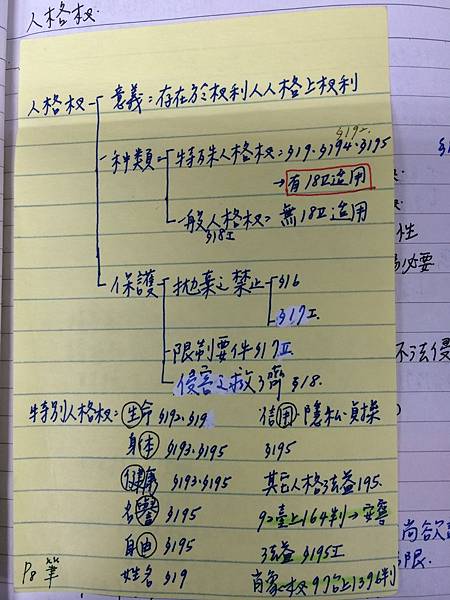 人格权.
§192.
人格权 意義:存在於权利人人格上权利
种類 特殊人格权:§19.§194.§195
→有18Ⅱ适用
一般人格权:無18Ⅱ适用
§18Ⅰ
保護 拋棄之禁止 §16
§17Ⅰ.
限制要件§17Ⅱ.
侵害之救濟 §18.
特別人格权:生命 §192.§19 信用.隱私.貞操
身体 §193.§195 §195
健康 §193.§195 其它人格法益195.
名譽 §195 92臺上164判→安寧
自由 §195 法益 §195Ⅰ
P8 筆 姓名 §19 肖像权 97台上1396判
性
必要
不法侵
尚欲
限.